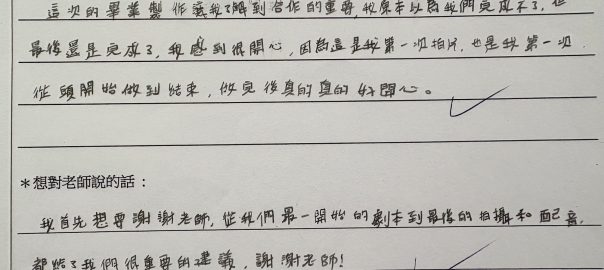 這次的畢業製作讓我了解到合作的重要,我原本以為我們完成不了,但
最後還是完成了,我感到很開心,因為這是我第一次拍片,也是我第一次
從頭開始做到結束,做完後真的真的好開心。
*想對老師說的話:
我首先想要謝謝老師,從我們最一開始的劇本到最後的拍攝和配音,
都給了我們很重要的建議,謝謝老師!